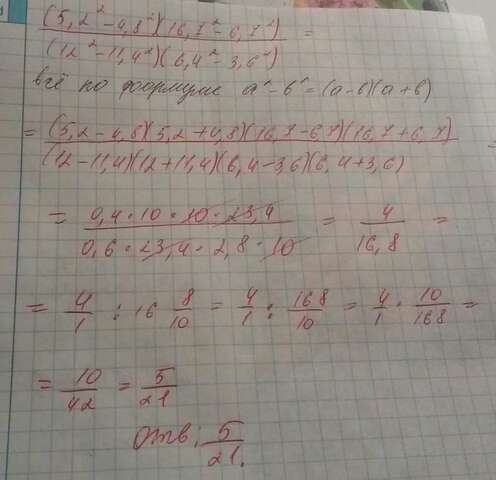 (5,2² - 4,8²)(16,7² - 6,7²) / (12² - 11,4²)(6,4² - 3,6²) =
всё по формуле a² - b² = (a - b)(a + b)
= (5,2 - 4,8)(5,2 + 4,8)(16,7 - 6,7)(16,7 + 6,7) / (12 - 11,4)(12 + 11,4)(6,4 - 3,6)(6,4 + 3,6) =
= 0,4 · 10 · 10 · 23,4 / 0,6 · 23,4 · 2,8 · 10 = 4 / 16,8 =
= 4/1 : 16 8/10 = 4/1 : 168/10 = 4/1 · 10/168 =
= 10/42 = 5/21
Отв: 5/21.